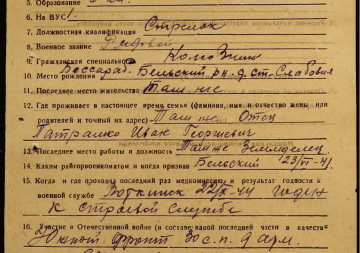 5. Образование 5 кл.
6. На ВУС
7. Должностная квалификация Стрелок
8. Военное звание Рядовой
9. Гражданская специальность
10. Место рождения Бессараб. Бельский рн. д.
11. Последнее место жительства Там же
12. Где проживает в настоящее время семья (фамилия, имя и отчество жены или
родителей и точный их адрес) Там же Отец
Иван Георгиевич
13. Последнее место работы и должность Там же Земледелец
14. Каким райгорвоенкоматом и когда призван Бельский
15. Когда и где проходил последний раз медкомиссию и результат годности к
военной службе Воткинск годен
к строевой службе
16. Участие в Отечественной войне (в составе какой последней части и в качестве
Южный фронт 30 с.п. 9 арм.